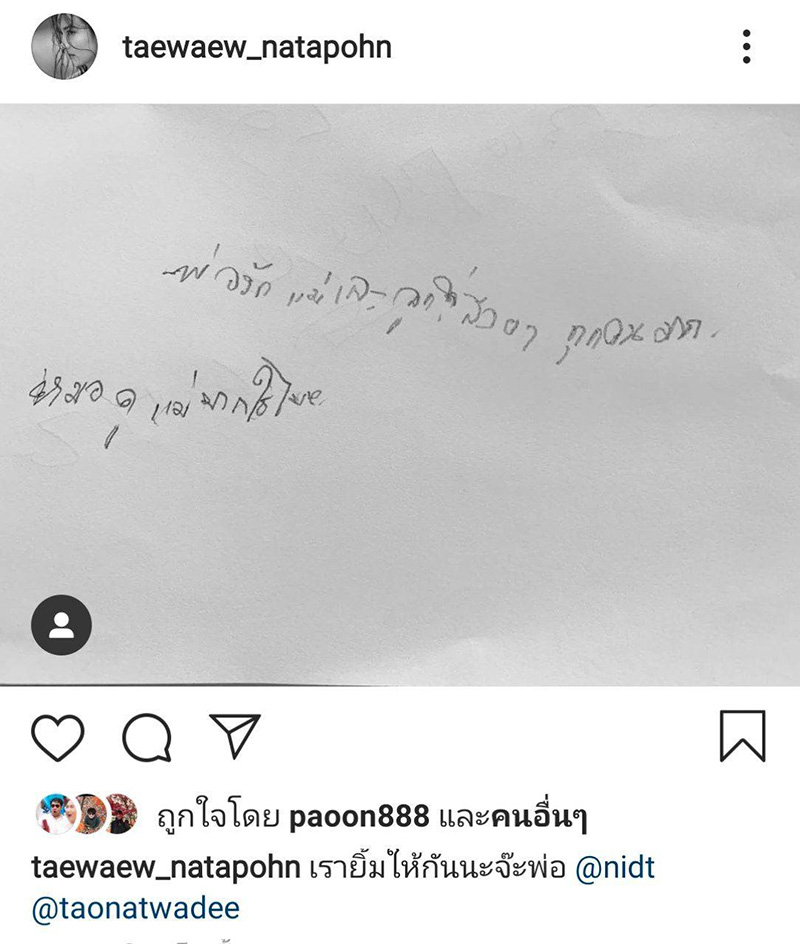 taewaew_natapohn
พ่อรัก แม่และลูกที่ ทุกคนมาก.
ดูแม่
ถูกใจโดย paoon888 และคนอื่นๆ
taewaew_natapohn เรายิ้มให้กันนะจ๊ะพ่อ @nidt
@taonatwadee